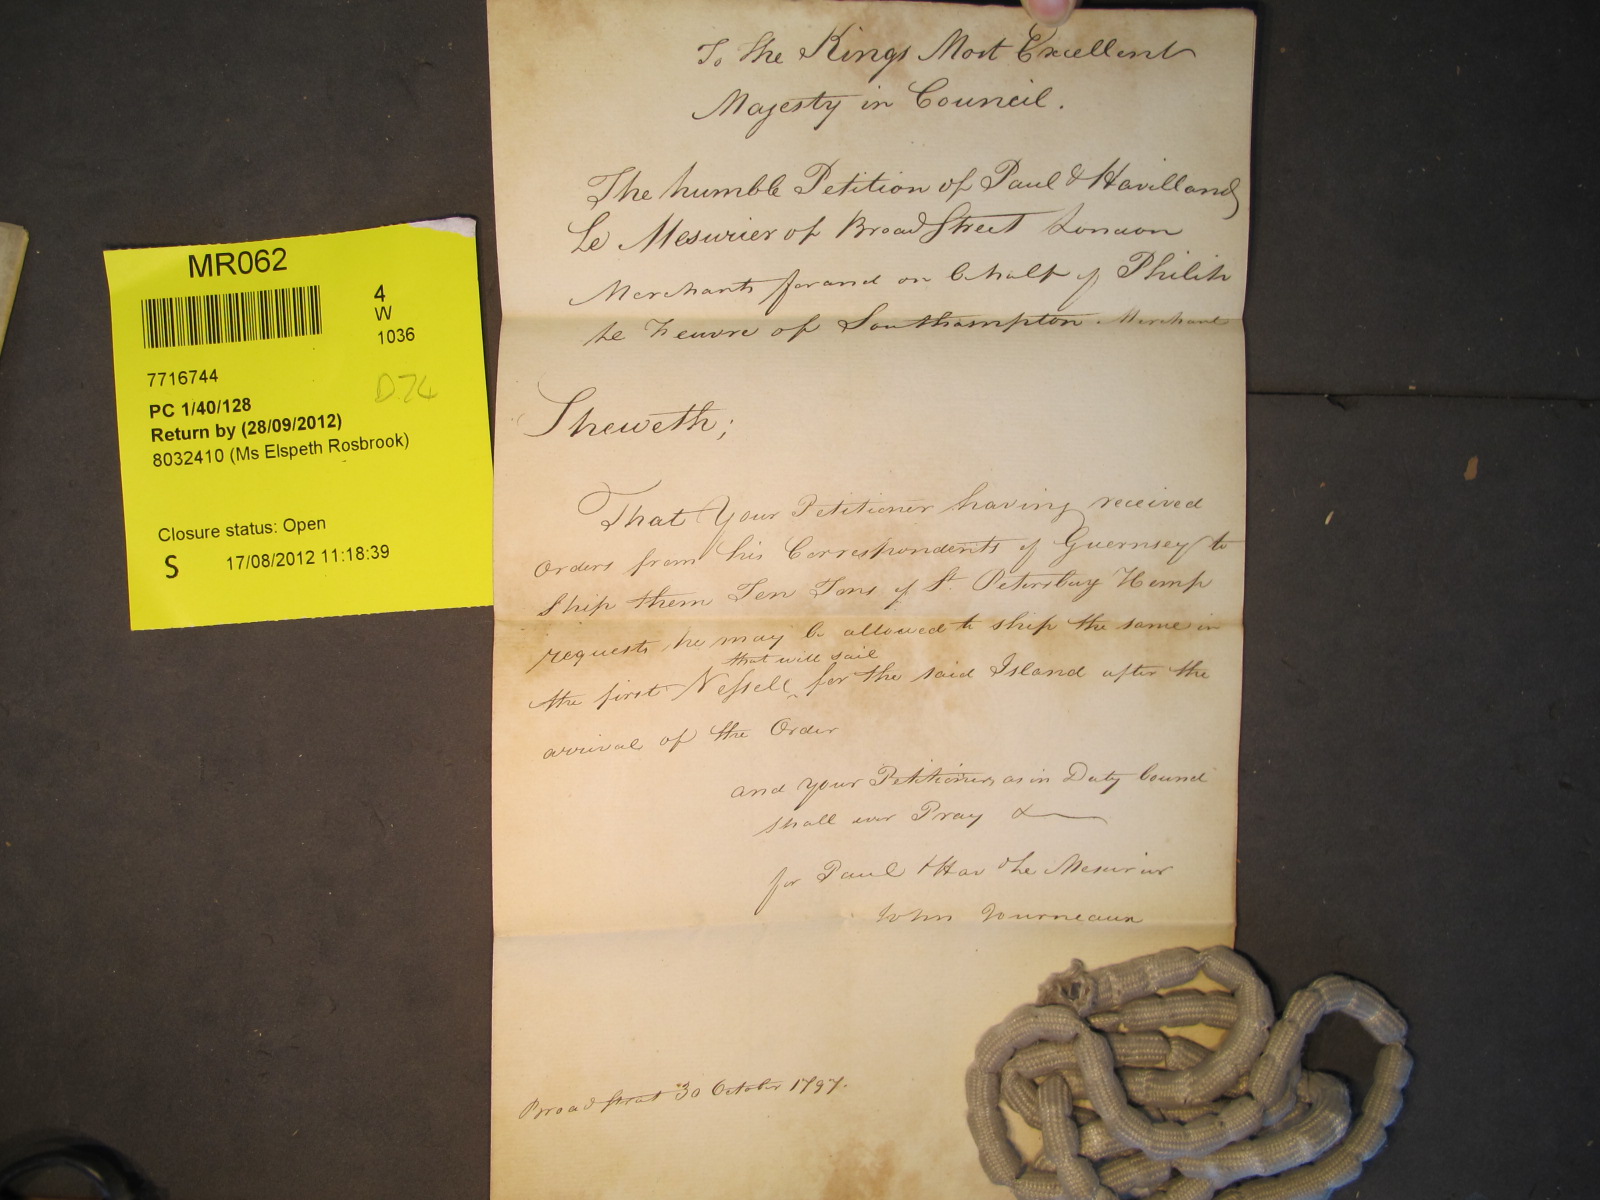 To the Kings Most Excellent
Majesty in Council.
The humble Petition of Paul & Havilland
Le Mesurier of Broad Street London
Merchants for and on behalf of Philip
Le Feuvre of Southampton Merchant
Sheweth;
That Your Petitioner having received
Orders from his Correspondents of Guernsey to
Ship them Ten Tons of St. Petersburg Hemp
requests he may be allowed to ship the same in
that will sail
the first Vessell ^ for the said Island after the
arrival of the Order
and your Petitioners, as in Duty bound
shall ever Pray &
for Paul & Hav d Le Mesurier
John
Broad Street 30 October 1797.
MR062
4
W
1036
7716744
D.74
PC 1/40/128
Return by (28/09/2012)
8032410 (Ms Elspeth Rosbrook)
Closure status: Open
S 17/08/2012 11:18:39